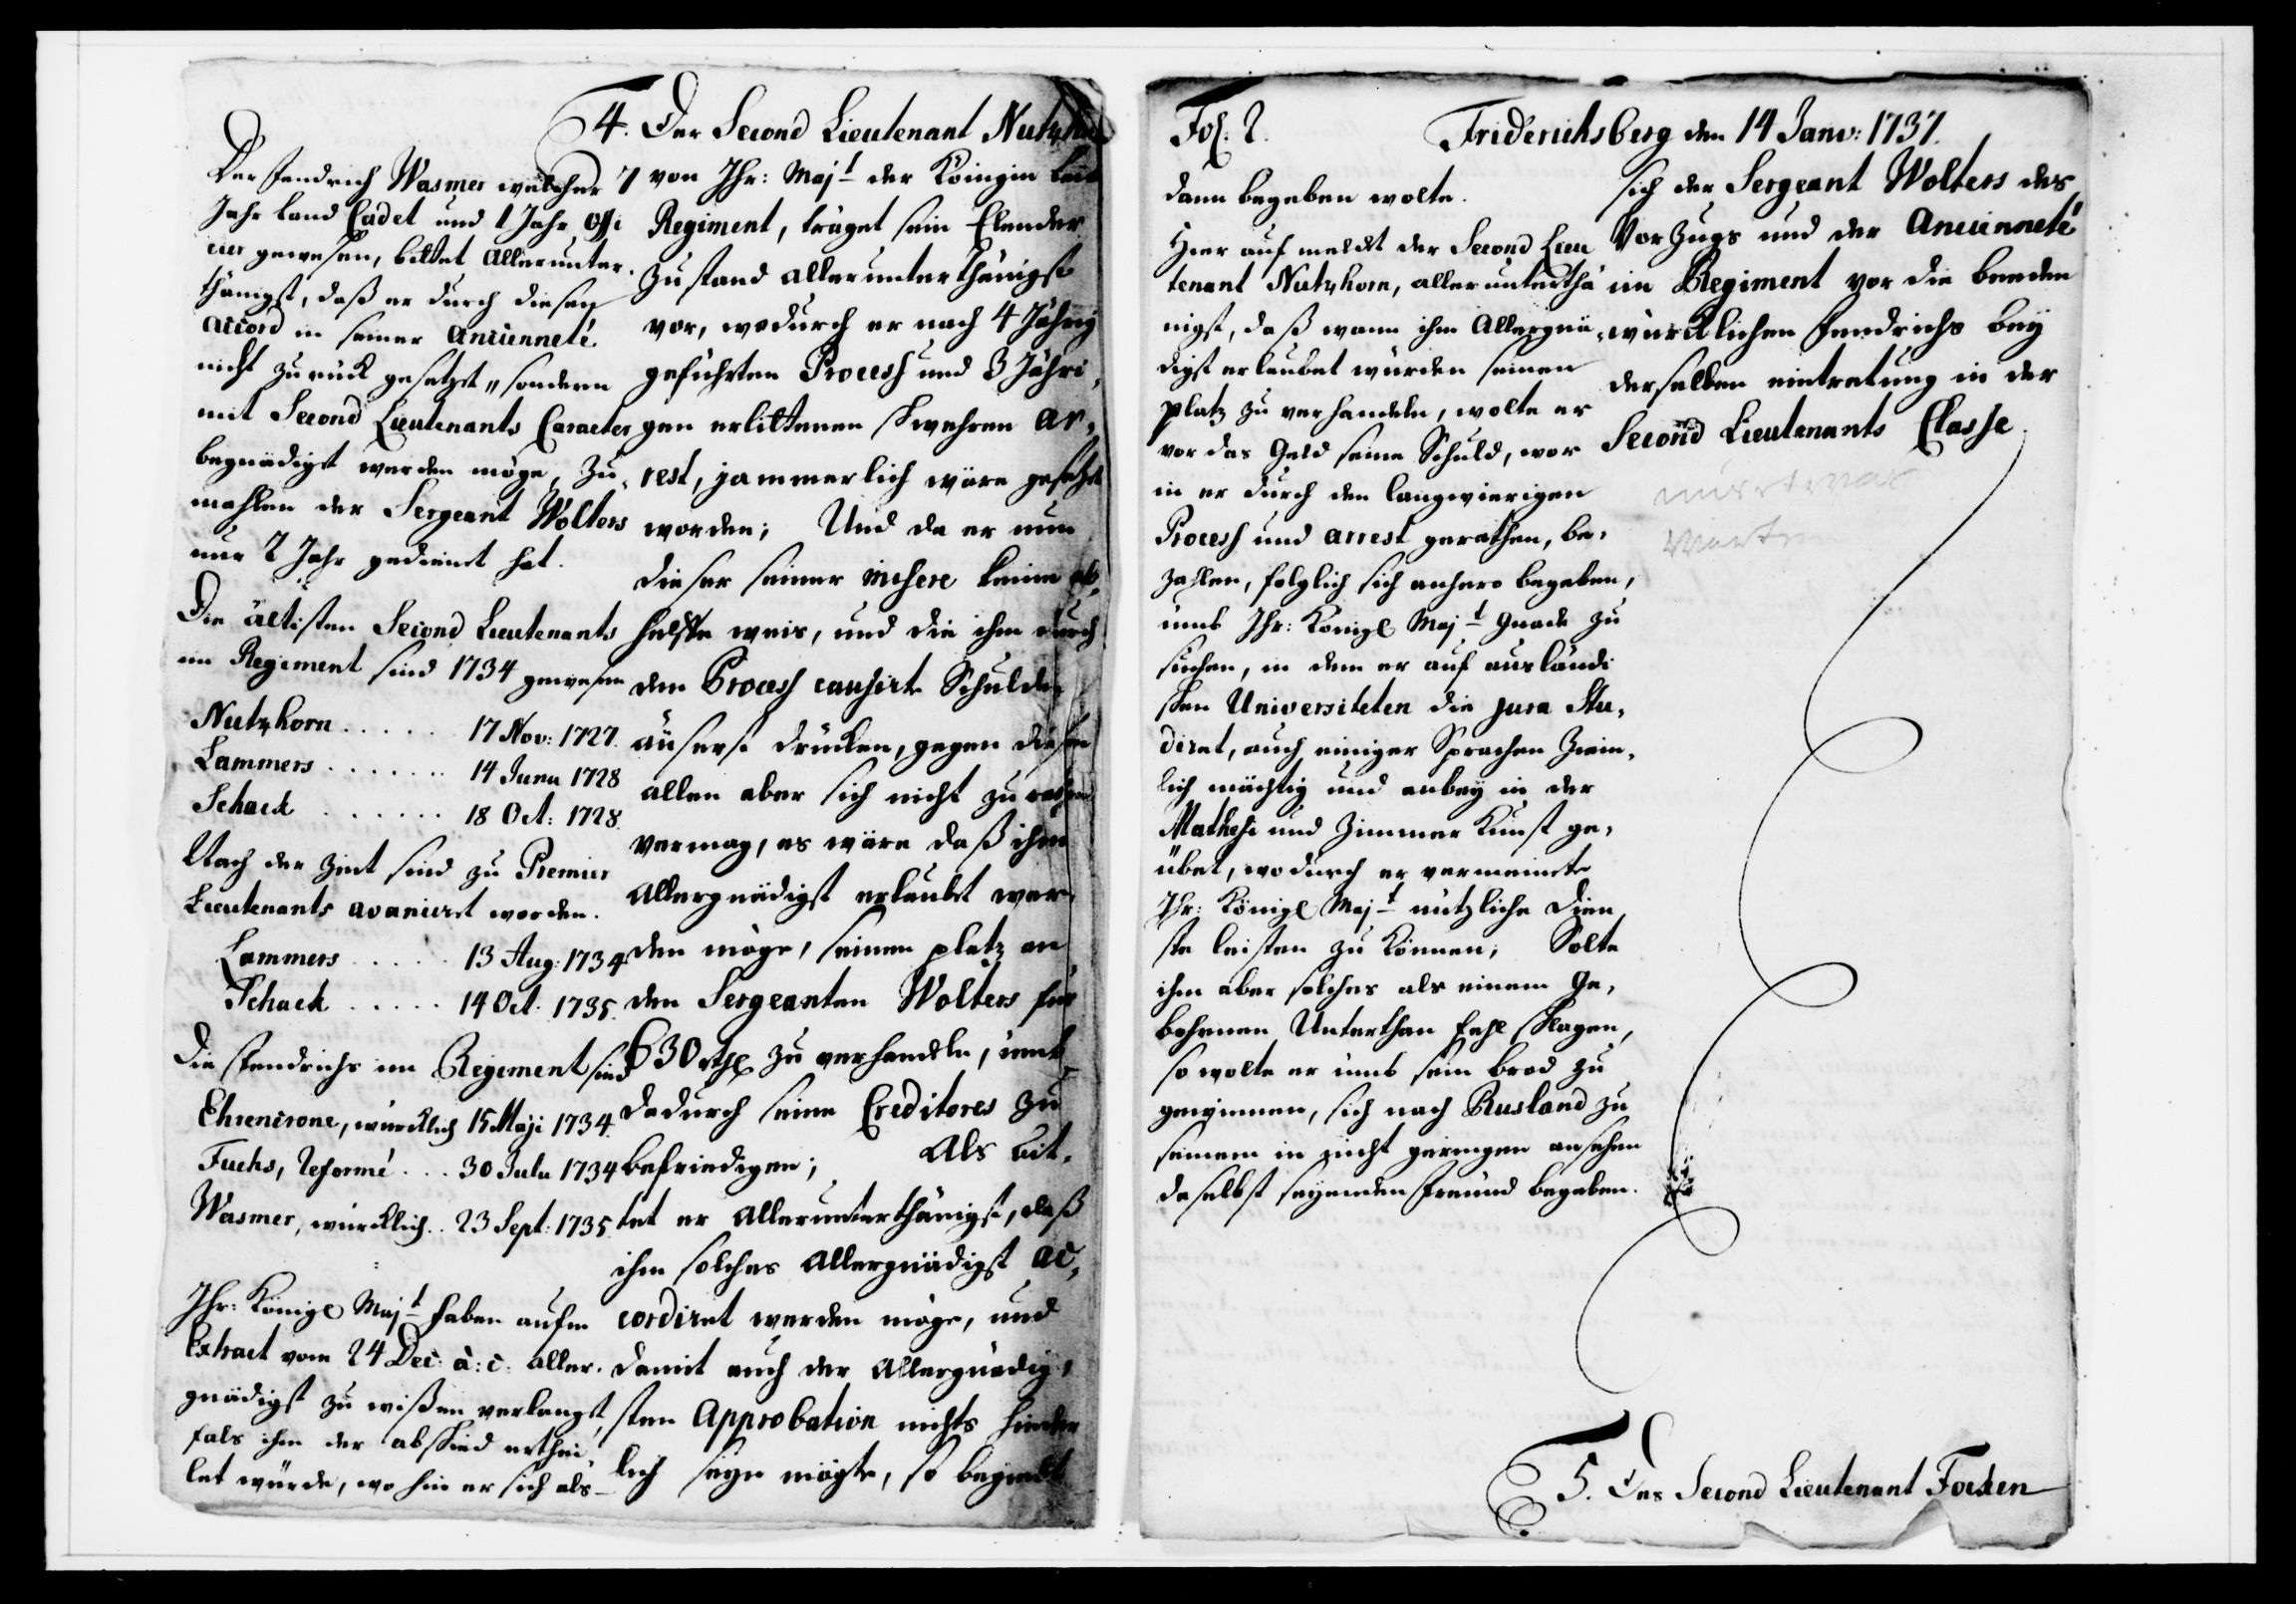 Der Fendrich Wasmer welcher 7
Jahr land Cadet und 1 Jahr Offi
cier gewesen, bittet Allerunter-
thänigst, daß er durch diesen
accord in seiner Ancienneté
nicht zurück gesetzet, sondern
mit Second Lieutenants Caracter
begnädiget werden möge, zu-
mahlen der Sergeant Wolters
nur 2 Jahr gedienet hat.
Die ältisten Second Lieutenants
im Regiment sind 1734 gewesen
Nutzhorn ..... 17 Nov: 1727.
Lammers ...... 14 Junii 1728
Schack ....... 18 Oct: 1728.
Nach der Zeit sind zu Premier
Lieutenants avanciret worden.
Lammers ..... 13 Aug: 1734
Schack ..... 14 Oct. 1735.
Die Fendrichs im Regiment sind
Ehrencrone, würcklich 15 Maji 1734.
Fuchs, Reformé ... 30 Julii 1734
Wasmer, würcklich .. 23 Sept: 1735
Ihr: Königl Majt haben aufm
Extract vom 24 Dec: a: c: aller-
gnädigst zu wißen verlangt,
fals ihm der abschied erthei-
let würde, wo hin er sich als-
4. Der Second Lieutenant Nutzhorn
von Ihr: Majt der Königin Leib
Regiment, träget sein Elender
Zustand allerunterthänigst
vor, wodurch er nach 4 Jährig
geführten Process und 3 Jähri-
gen erlittenen schwehren Ar-
rest, jammerlich wäre gesetzet
worden; Und da er nun
dieser seiner misere keine ab-
helffe weis, und die ihm durch
den Process causirte Schulden
äuserst drücken, gegen diesem
allen aber sich nicht zu rathen
vermag, es wäre daß ihm
Allergnädigst erlaubt wer-
den möge, seinen platz an
den Sergeanten Wolters für
630 rthl zu verhandeln, umb
dadurch seine Creditores zu
befriedigen; Als bit-
tet er Allerunterthänigst, daß
ihm solches Allergnädigst ac-
cordiret werden möge, und
damit auch der Allergnädig-
sten Approbation nichts hinder
lich seyn mögte, so begiebt
Fol. 2. Friderichsberg den 14 Janv: 1737.
dann begeben wolte.
Hier auf meldet der Second Lieu
tenant Nutzhorn, allerunterthä
nigst, daß wann ihm Allergnä-
digst erlaubet würden seinen
platz zu verhandeln, wolte er
vor das Geld seine Schuld, wor
in er durch den langwierigen
Process und arrest gerathen, be-
zahlen, folglich sich anhero begeben,
umb Ihr: Königl Majt Gnade zu
suchen, in dem er auf ausländi
schen Universiteten die jura Stu-
diret, auch einiger Sprachen Ziem-
lich mächtig und anbey in der
Mathesi und Zimmer Kunst ge-
übet, wodurch er vermeinete
Ihr: Königl Majt nützliche Dien
ste leisten zu können; Solte
ihm aber solches als einem Ge-
bohrnen Unterthan fehl schlagen,
so wolte er umb sein brod zu
gewinnen, sich nach Rusland zu
seinem in nicht geringen ansehen
daselbst seyenden Freund begeben.
sich der Sergeant Wolters des
Vorzugs und der Ancienneté
im Regiment vor die beeden
würcklichen Fendrichs bey
derselben eintretung in der
Second Lieutenants Classe.
5. Des Second Lieutenant Focken